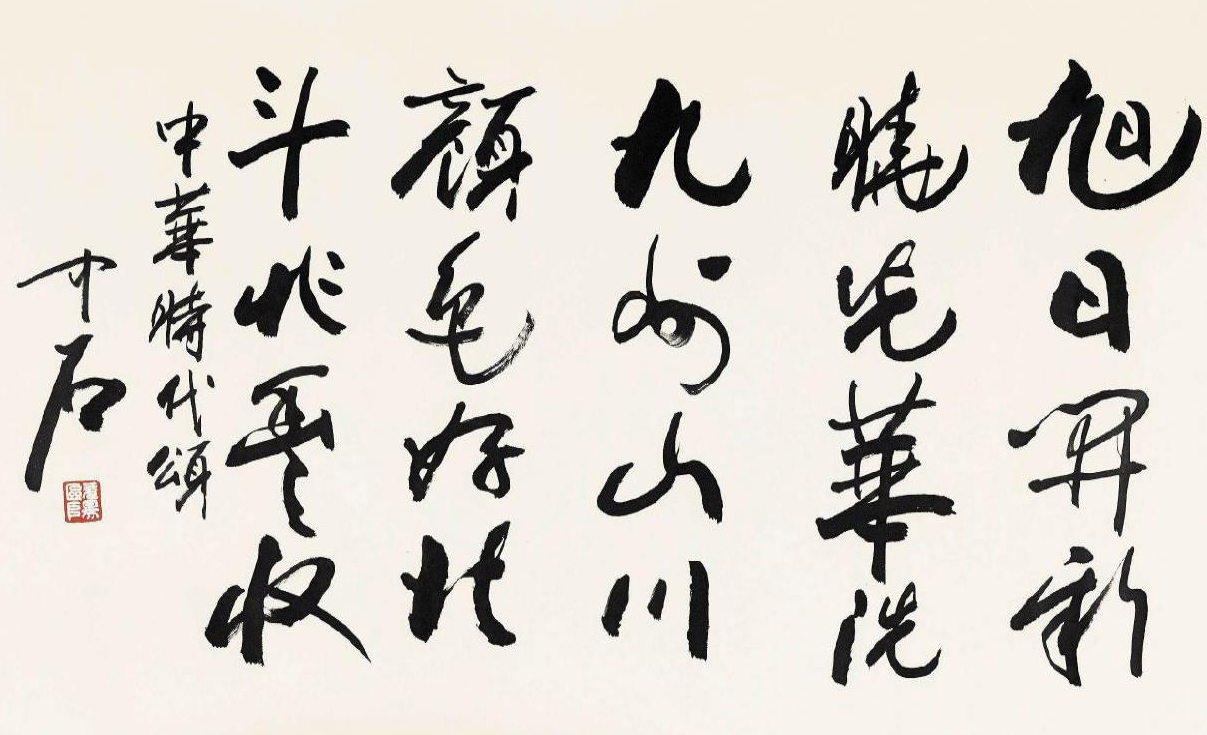 旭日開新
曉光華洗
九州山川
顏色好北
斗兆豐收
中華時代頌
中石